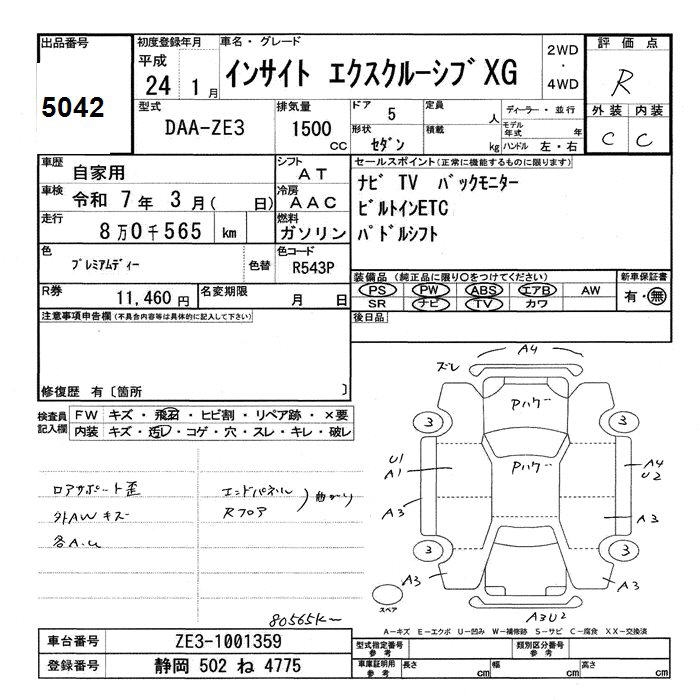 出品番号
5042
初度登録年月
平成
24 1月
車名・グレード
インサイト エクスクルーシブXG
2WD
・
4WD
評価点
R
外装 内装
C C
型式
DAA-ZE3
排気量
1500
CC
ドア 5
形状 セダン
定員 人
積載 kg
ディーラー・並行
モデル年式 年
ハンドル 左・右
車歴 自家用
車検 令和 7年 3月( 日)
走行 8万0千565 km
色 プレミアムディー
色替
シフト AT
冷房 AAC
燃料 ガソリン
色コード R543P
R券 11,460円
名変期限 月 日
セールスポイント(正常に機能するものに限ります)
ナビ TV バックモニター
ビルトインETC
パドルシフト
装備品(純正品に限り〇をつけてください)
PS PW ABS エアB AW
SR ナビ TV カワ
新車保証書
有・無
後日品
注意事項申告欄(不具合内容等は具体的に記入して下さい)
修復歴 有〔箇所 〕
検査員記入欄
FW キズ・飛石・ヒビ割・リペア跡・×要
内装 キズ・汚レ・コゲ・穴・スレ・キレ・破レ
ロアサポート歪
外AWキズ
各A.U
エンドパネル
Rフロア
曲がり
80565K~
ズレ
A4
Pハゲ
Pハゲ
3
3
3
3
U1
A1
A3
A3
A4
U2
A3
A3
A3U2
スペア
A-キズ E-エクボ U-凹み W-補修跡 S-サビ C-腐食 XX-交換済
車台番号 ZE3-1001359
登録番号 静岡 502 ね 4775
型式指定番号参考
類別区分番号参考
車庫証明用参考
長さ cm
幅 cm
高さ cm